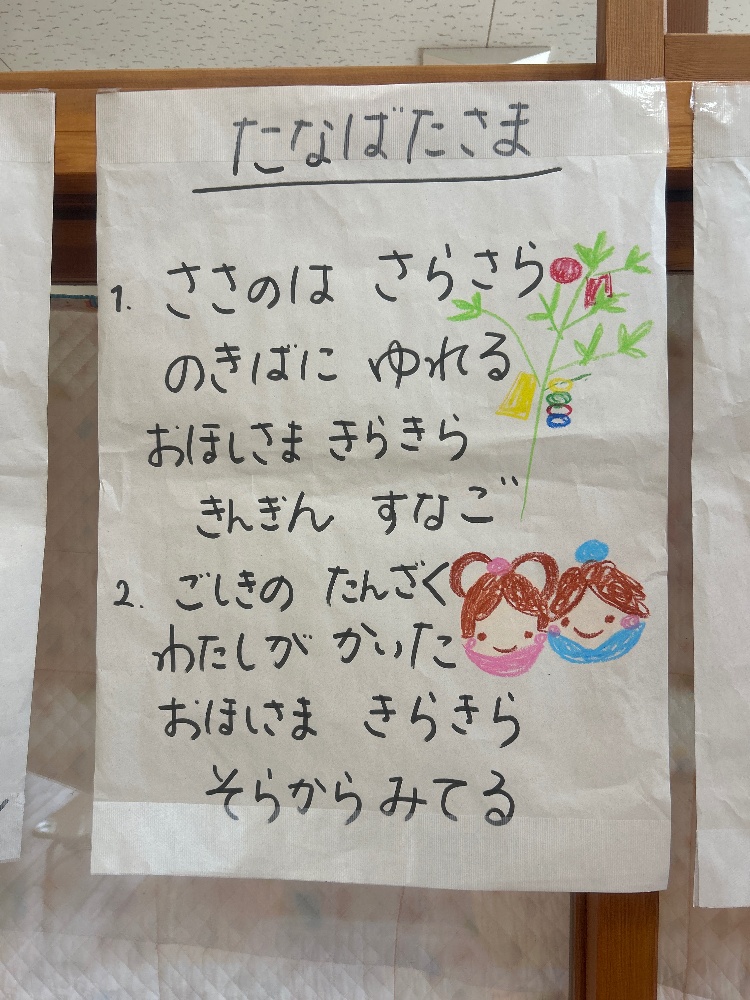 たなばたさま
1. ささのは さらさら
のきばに ゆれる
おほしさま きらきら
きんぎん すなご
2. ごしきの たんざく
わたしが かいた
おほしさま きらきら
そらから みてる